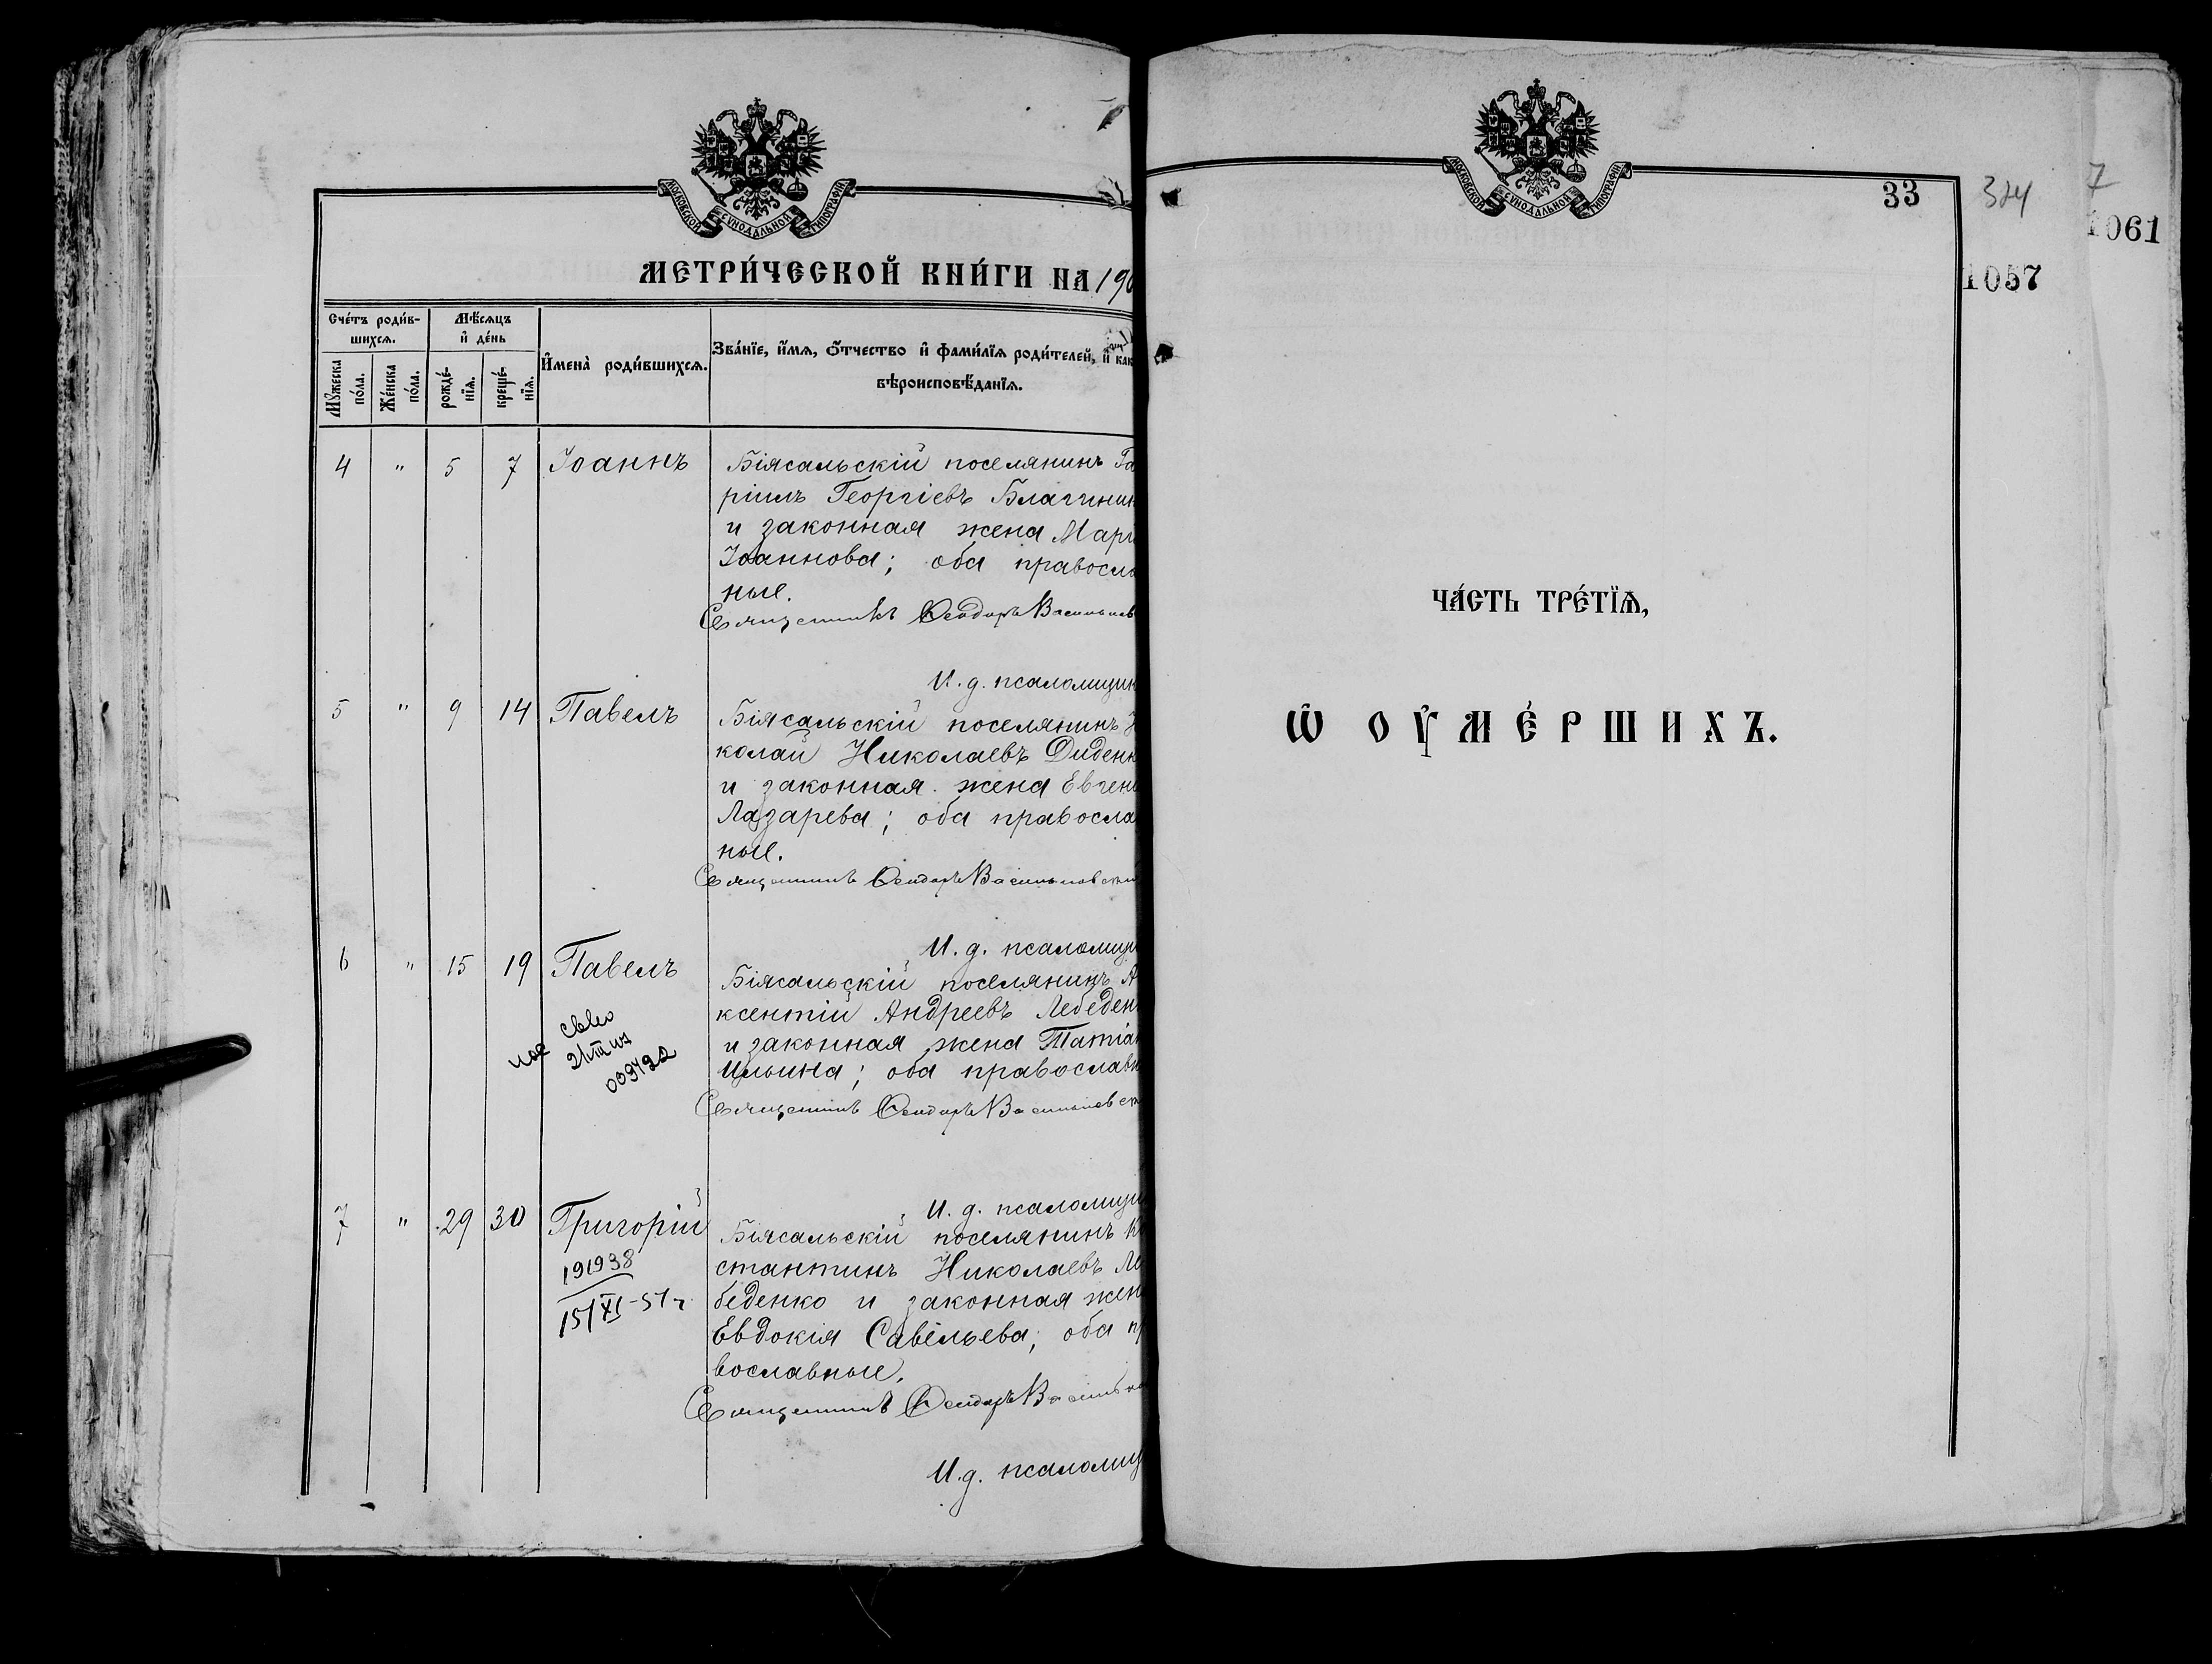 МОСКОВСКОЙ СѴНОДАЛЬНОЙ ТИПОГРАФІИ
МЕТРИ́ЧЕСКОЙ КНИ́ГИ НА 190
Сче́тъ роди́в-
шихсѧ.
Мѣ́сѧцъ
и҆ де́нь
Мꙋ́жеска
по́ла.
Же́нска
по́ла.
рожде́-
нїѧ.
креще́-
нїѧ.
И҆мена̀ роди́вшихсѧ.
Зва́нїе, и҆́мѧ, ѻ҆́тчество и҆ фами́лїѧ роди́телей, и҆ как
вѣроисповѣ́данїѧ.
4 " 5 7 Іоаннъ
Біясальскій поселянинъ Га
ріилъ Георгіевъ Благинин
и законная жена Марі
Іоаннова; оба правосла
ные.
Священникъ Ѳеодоръ Васильков
И. д. псаломщик
5 " 9 14 Павелъ
Біясальскій поселянинъ Н
колай Николаевъ Диденк
и законная жена Евгені
Лазарева; оба правосла
ные.
Священникъ Ѳеодоръ Васильковскій
И. д. псаломщи
6 " 15 19 Павелъ
Біясальскій поселянинъ А
ксентій Андреевъ Лебеден
и законная жена Татіан
Ильина; оба православн
Священникъ Ѳеодоръ Васильковск
009492
И. д. псаломщи
7 " 29 30 Григорій
191938
15/XI-51г.
Біясальскій поселянинъ К
стантинъ Николаевъ Ле
беденко и законная жен
Евдокія Савельева; оба п
вославные.
Священникъ Ѳеодоръ Василько
И. д. псаломщ
МОСКОВСКОЙ СѴНОДАЛЬНОЙ ТИПОГРАФІИ
33
324
7
1061
1057
ЧА́СТЬ ТРЕ́ТЇѦ,
Ѡ҆ ОУ҆МЕ́РШИХЪ.